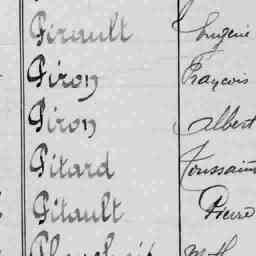 Pirault Eugène
Piron François
Piron Albert
Pitard Toussaint
Pitault Pierre